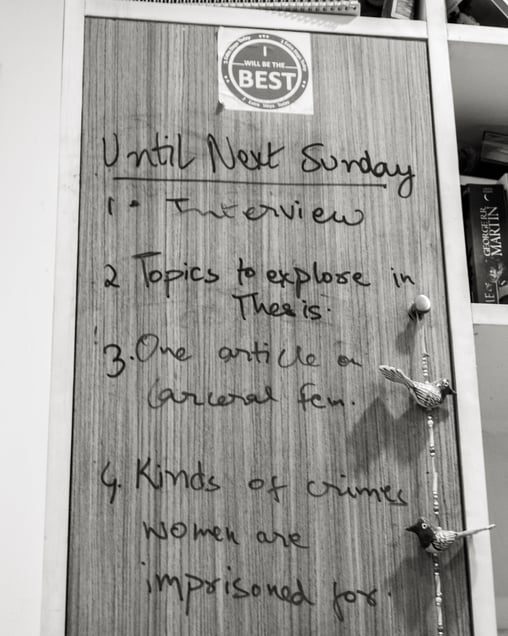 I
WILL BE THE
BEST
Until Next Sunday
1. Interview
2 Topics to explore in
Thesis.
3. One article on
Carceral fem.
4. Kinds of crimes
women are
imprisoned for.
GEORGE R.R.
MARTIN